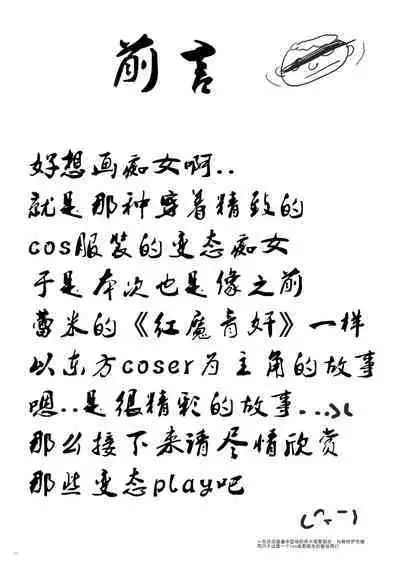 前言
好想画痴女啊..
就是那种穿着精致的
cos服装的变态痴女
于是本次也是像之前
蕾米的《红魔青奸》一样
以东方coser为主角的故事
嗯..是很精彩的故事...
那么接下来请尽情欣赏
那些变态play吧